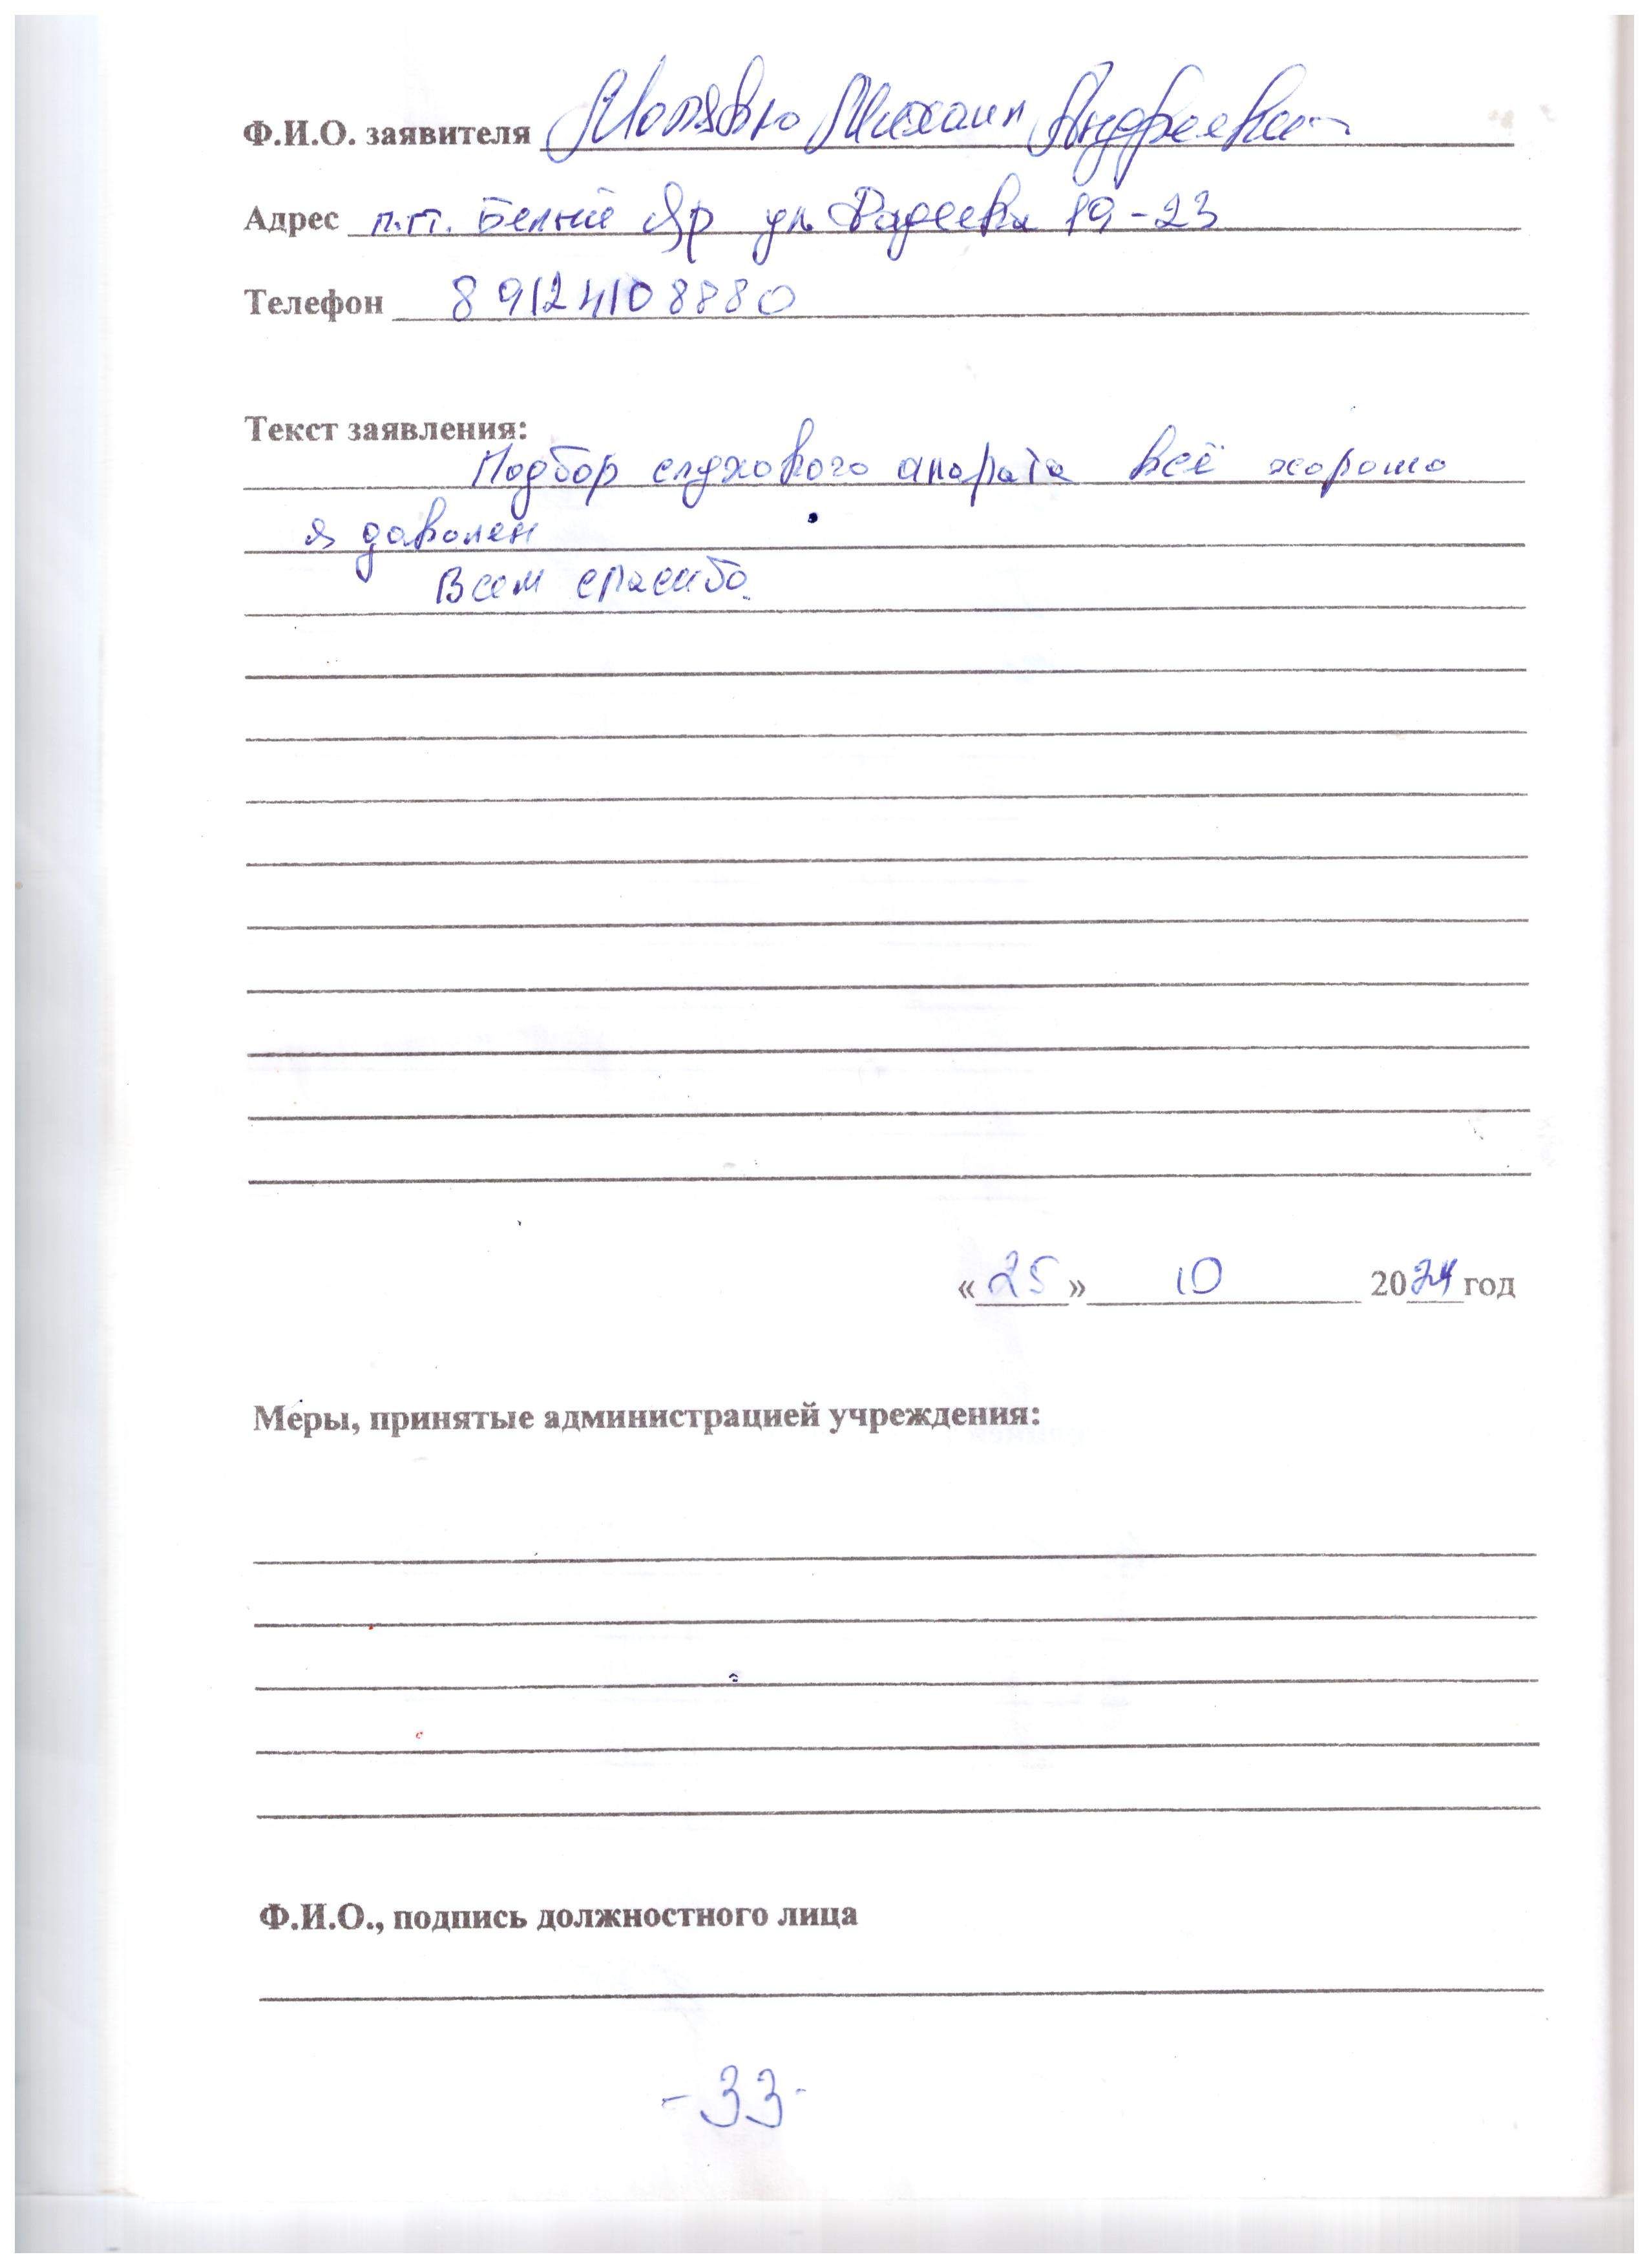 Ф.И.О. заявителя Михаил Андреевич
Адрес п.г.т. Белый Яр ул Фадеева 19-23
Телефон 89124108880
Текст заявления:
Подбор слухового апарата всё хорошо
я доволен
Всем спасибо.
«25» 10 2024 год
Меры, принятые администрацией учреждения:
Ф.И.О., подпись должностного лица
-33-